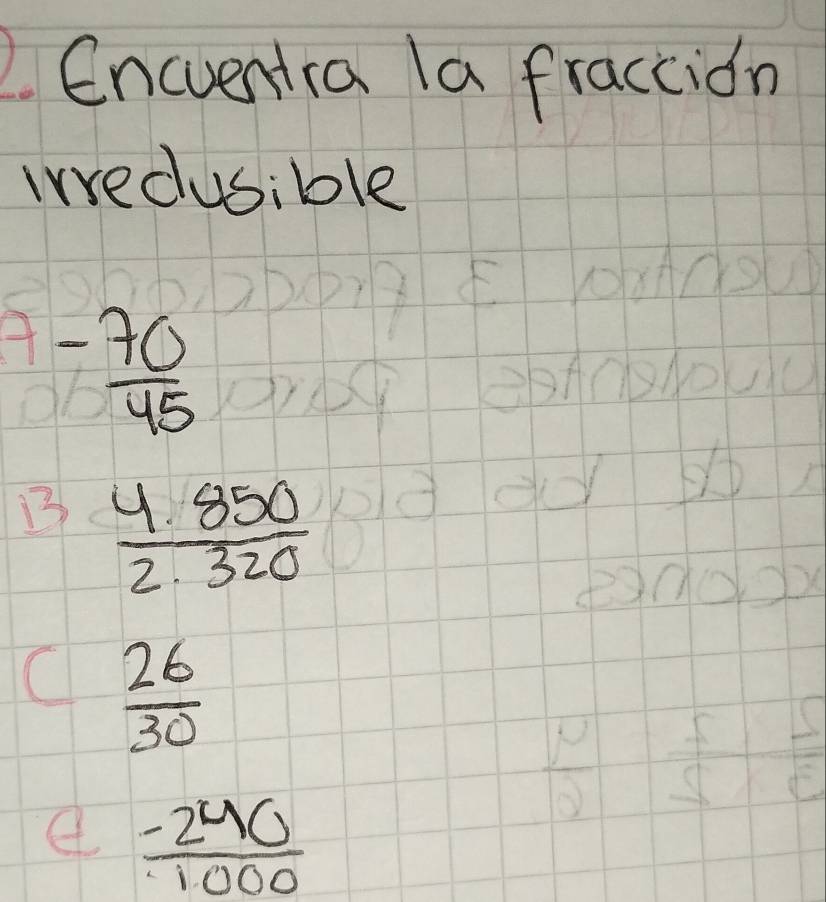 2. Encuentra la fracción
irredusible
A - 70
45
B 4.850
2.320
C 26
30
e -240
-1000